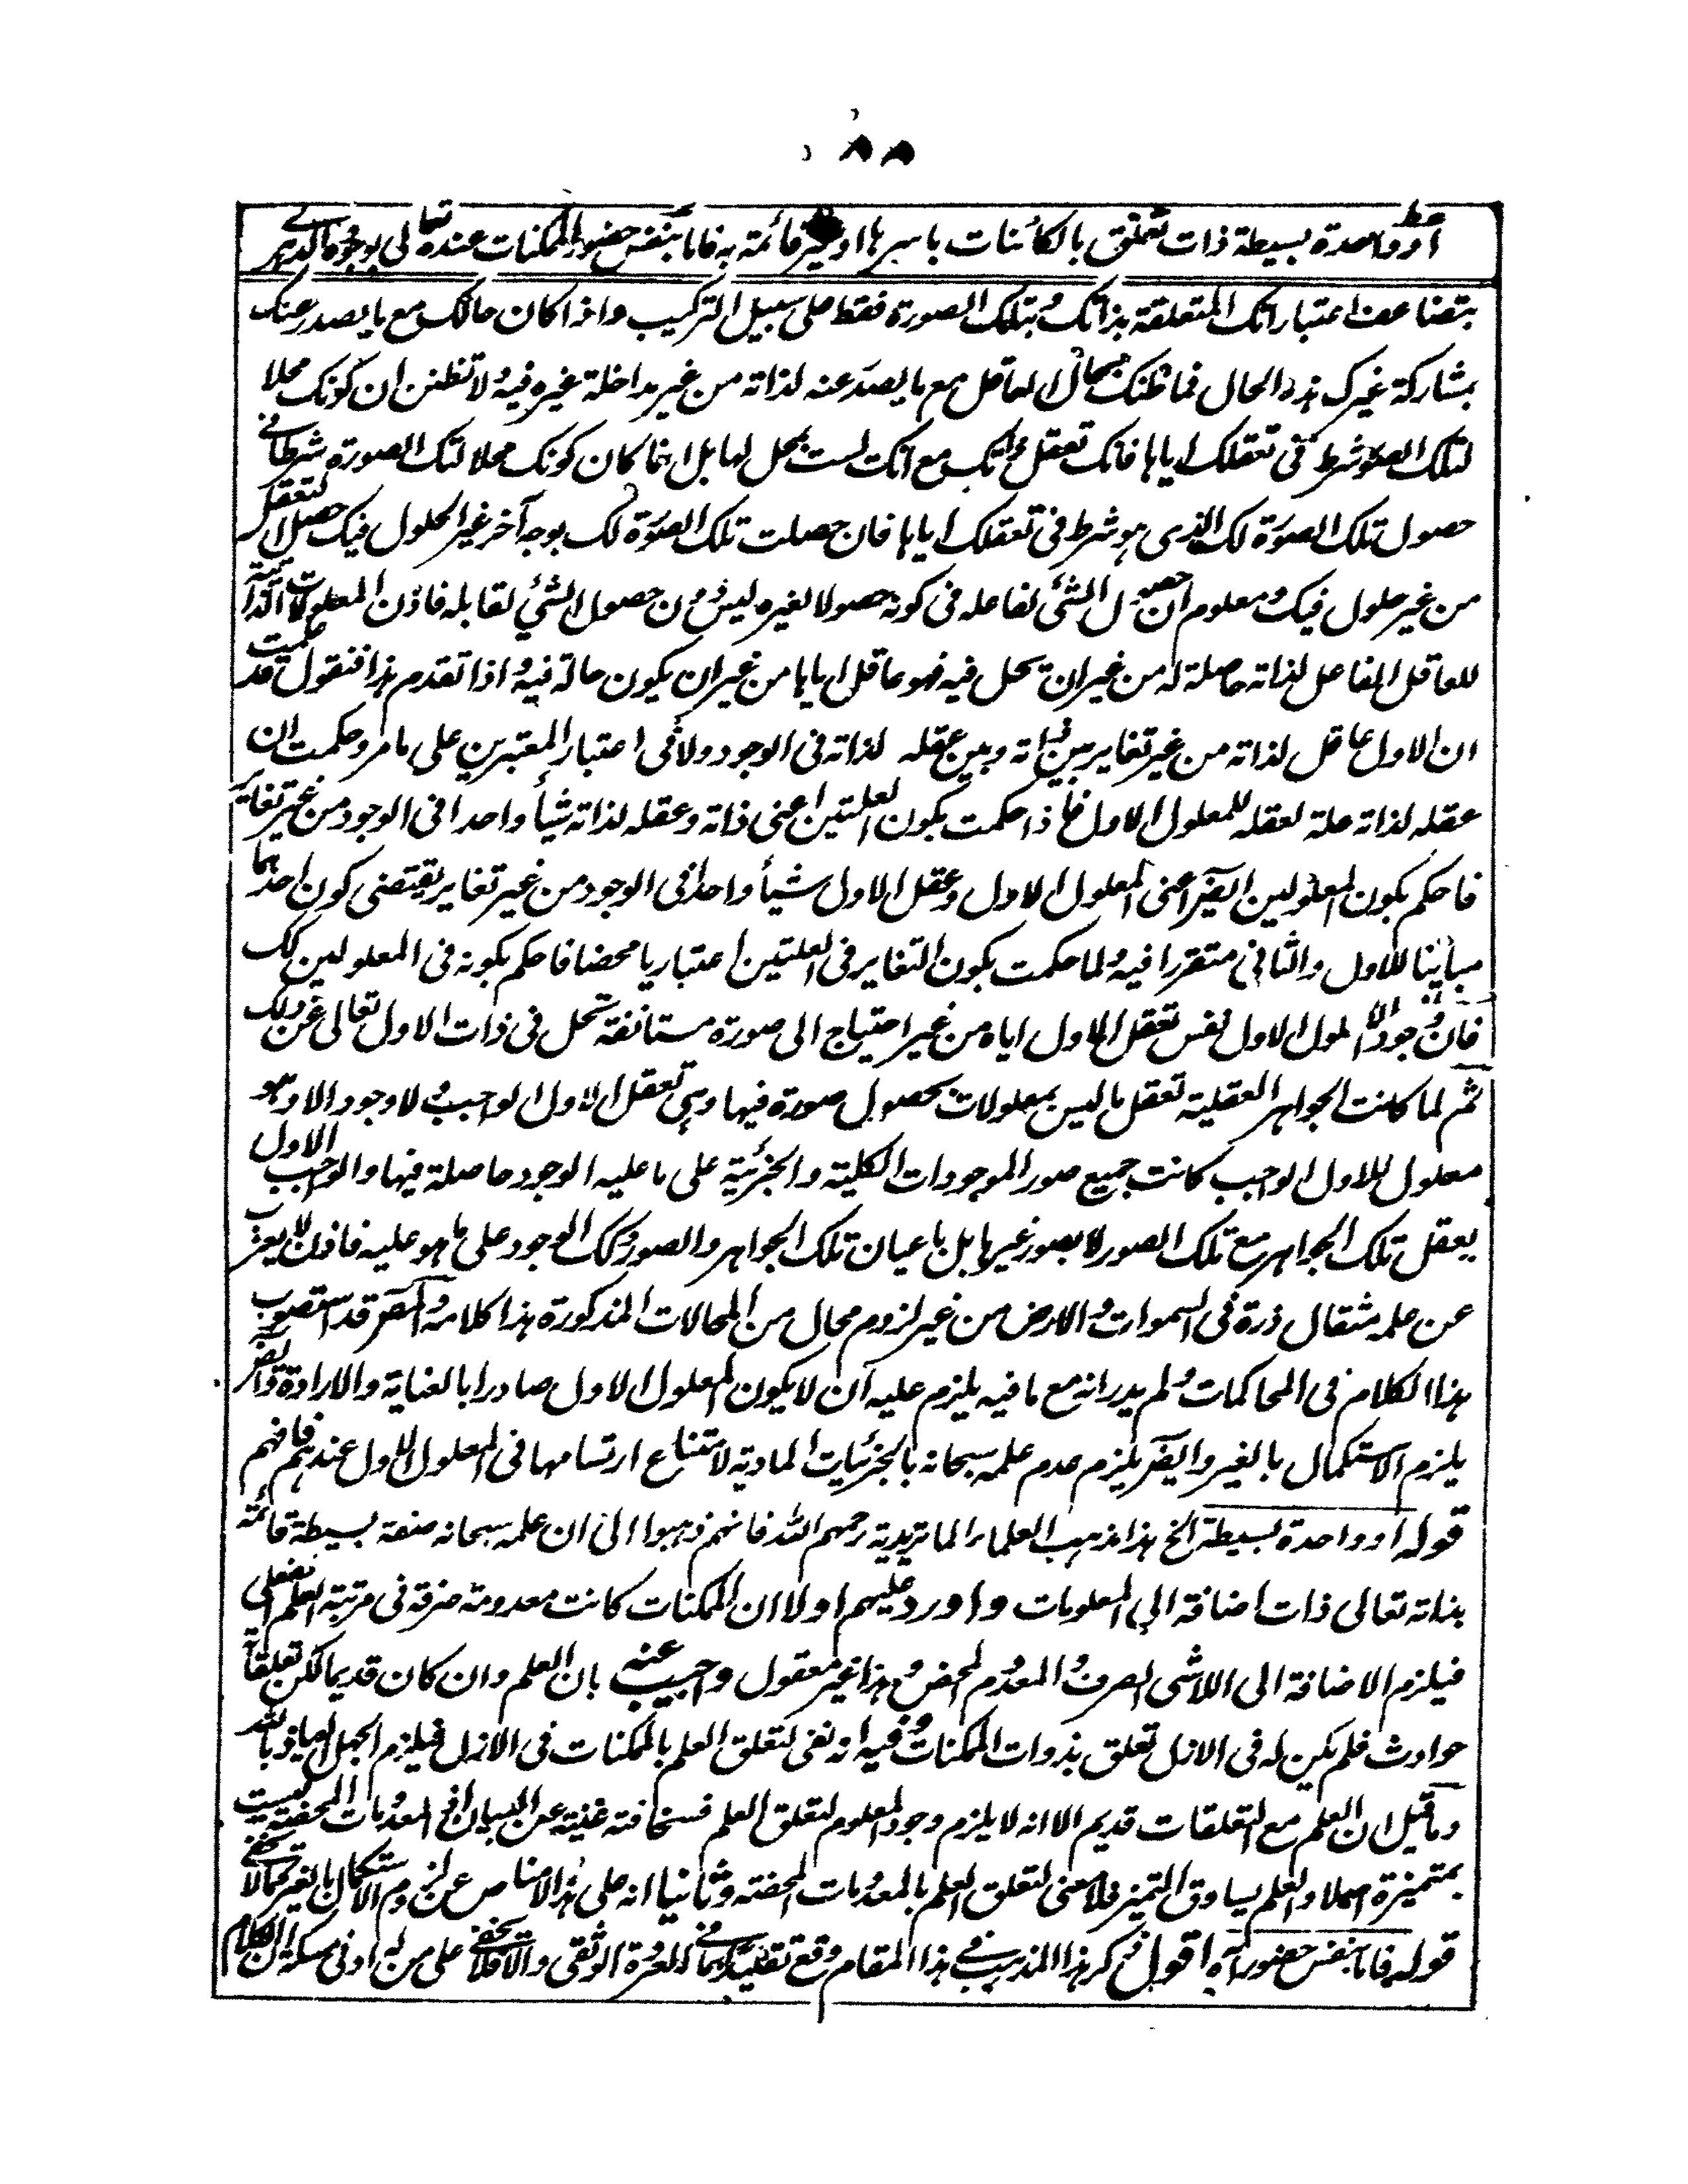 ٨٨
او واحدة بسيطة ذات تعلق بالكائنات باسرها او غير قائمة به فاما بنفس حضور الممكنات عنده تعالى بوجودها الدهرے
بتضاعف اعتباراتك المتعلقة بذاتك وبتلك الصورة فقط على سبيل التركيب واذا كان حالك مع ما يصدر عنك
بمشاركة غيرك هذه الحال فما ظنك بحال العاقل مع ما يصدر عنه لذاته من غير مداخلة غيره فيه ولا تظنن ان كونك محلا
لتلك الصورة شرط فى تعقلك اياها فانك تعقل ذاتك مع انك لست بمحل لها بل انما كان كونك محلا لتلك الصورة شرطا فے
حصول تلك الصورة لك الذى هو شرط فى تعقلك اياها فان حصلت تلك الصورة لك بوجه آخر غير الحلول فيك حصل التعقل
من غير حلول فيك ومعلوم ان حصول الشئ لفاعله فى كونه حصولا لغيره ليس دون حصول الشئ لقابله فاذن المعلولات الذاتية
للعاقل الفاعل لذاته حاصلة له من غير ان تحل فيه فهو عاقل اياها من غير ان يكون حالة فيه واذا تقدم هذا فنقول قد علمت
ان الاول عاقل لذاته من غير تغاير بين ذاته وبين عقله لذاته فى الوجود ولا فى اعتبار المعتبرين على ما مر وحكمت ان
عقله لذاته علة لعقله للمعلول الاول فاذا حكمت بكون العلتين اعنى ذاته وعقله لذاته شيأ واحدا فى الوجود من غير تغاير
فاحكم بكون المعلولين ايضا اعنى المعلول الاول وعقل الاول شيأ واحدا فى الوجود من غير تغاير يقتضى كون احدهما
مباينا للاول والثانى متقررا فيه ولما حكمت بكون التغاير فى العلتين اعتباريا محضا فاحكم بكونه فى المعلولين كك
فاذن وجود المعلول الاول نفس تعقل الاول اياه من غير احتياج الى صورة مستانفة تحل فى ذات الاول تعالى عن ذلك
ثم لما كانت الجواهر العقلية تعقل ما ليس بمعلولات بحصول صورة فيها وهى تعقل الاول الواجب ولا وجود الا وهو
معلول للاول الواجب كانت جميع صور الموجودات الكلية والجزئية على ما عليه الوجود حاصلة فيها والواجب الاول
يعقل تلك الجواهر مع تلك الصور لا بصور غيرها بل باعيان تلك الجواهر والصور وكك الوجود على ما هو عليه فاذن لا يعزب
عن علمه مثقال ذرة فى السموات والارض من غير لزوم محال من المحالات المذكورة هذا كلامه وقد استصوب
هذا الكلام فى المحاكمات ولم يدر انه مع ما فيه يلزم عليه ان لا يكون المعلول الاول صادرا بالعناية والارادة وايضا
يلزم الاستكمال بالغير وايضا يلزم عدم علمه سبحانه بالجزئيات المادية لامتناع ارتسامها فى المعلول الاول عندهم فافهم
قوله او واحدة بسيطة الخ هذا مذهب العلماء الماتريدية رحمهم الله فانهم ذهبوا الى ان علمه سبحانه صفة بسيطة قائمة
بذاته تعالى ذات اضافة الى المعلومات واورد عليهم اولا ان الممكنات كانت معدومة صرفة فى مرتبة العلم الفعلى
فيلزم الاضافة الى اللاشى الصرف والمعدوم المحض وهذا غير معقول واجيب عنه بان العلم وان كان قديما لكن تعلقاته
حوادث فلم يكن له فى الازل تعلق بذوات الممكنات وفيه انه نفى لتعلق العلم بالممكنات فى الازل فيلزم الجهل العياذ بالله
وما قيل ان العلم مع التعلقات قديم الا انه لا يلزم وجود المعلوم لتعلق العلم فسخافته غنية عن البيان اذ المعدومات المحضة ليست
بمتميزة اصلا والعلم يساوق التميز فلا معنى لتعلق العلم بالمعدومات المحضة وثانيا انه على هذا لا مناص عن لزوم الاستكمال بالغير كما لا يخفى
قوله فاما بنفس حضور آه اقول ذكر هذا المذهب فے هذا المقام وقع تقليدا لما فے العروة الوثقى والا فلا يخفى على من له ادنى مسكة ان الكلام